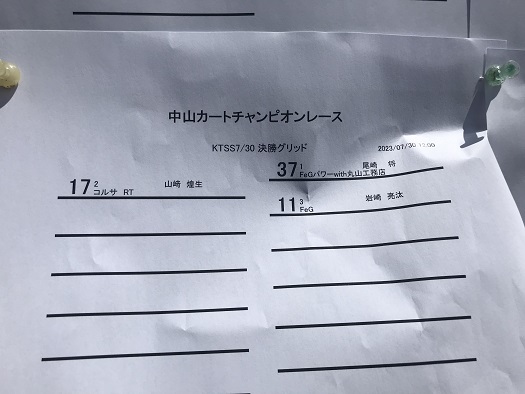 中山カートチャンピオンレース
KTSS7/30 決勝グリッド 2023/07/30 12:00
37 1 尾崎 将
FeGパワーwith丸山工務店
17 2 山崎 煌生
コルサ RT
11 3 岩崎 亮汰
FeG